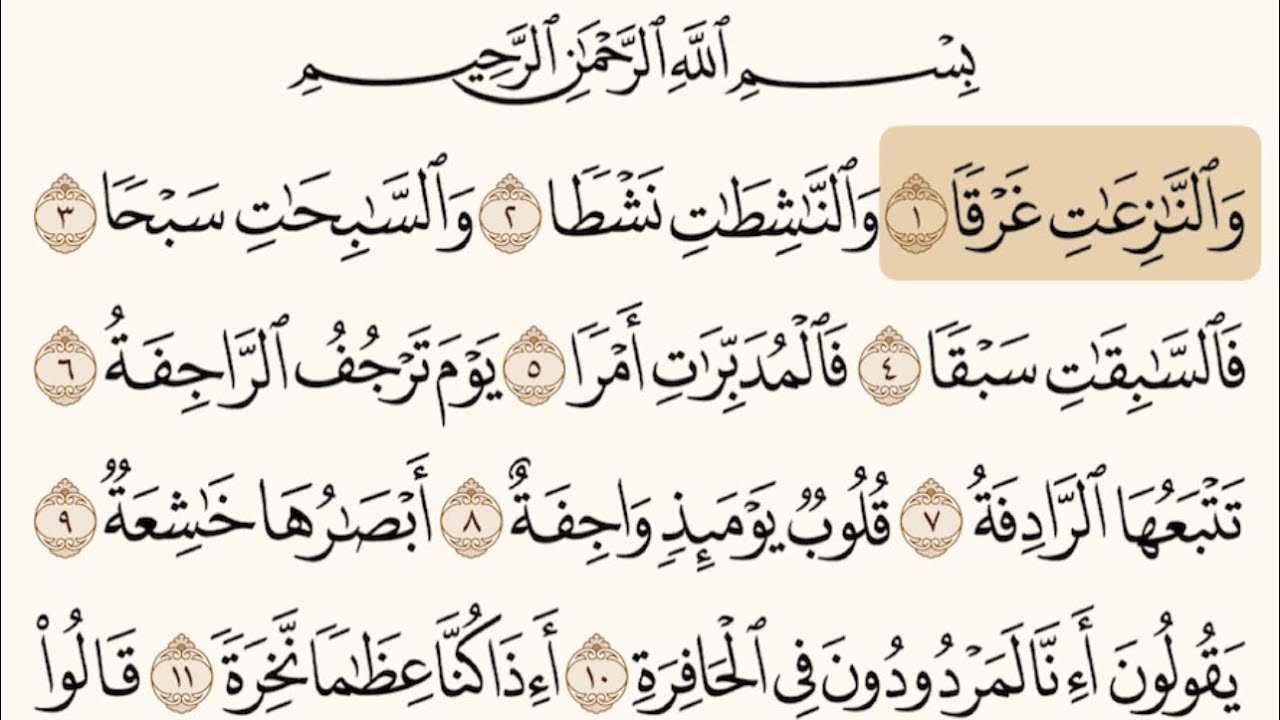 بِسْمِ ٱللَّهِ ٱلرَّحْمَٰنِ ٱلرَّحِيمِ
وَٱلنَّٰزِعَٰتِ غَرْقًا ١ وَٱلنَّٰشِطَٰتِ نَشْطًا ٢ وَٱلسَّٰبِحَٰتِ سَبْحًا ٣
فَٱلسَّٰبِقَٰتِ سَبْقًا ٤ فَٱلْمُدَبِّرَٰتِ أَمْرًا ٥ يَوْمَ تَرْجُفُ ٱلرَّاجِفَةُ ٦
تَتْبَعُهَا ٱلرَّادِفَةُ ٧ قُلُوبٌ يَوْمَئِذٍ وَاجِفَةٌ ٨ أَبْصَٰرُهَا خَٰشِعَةٌ ٩
يَقُولُونَ أَءِنَّا لَمَرْدُودُونَ فِي ٱلْحَافِرَةِ ١٠ أَءِذَا كُنَّا عِظَٰمًا نَّخِرَةً ١١ قَالُوا۟